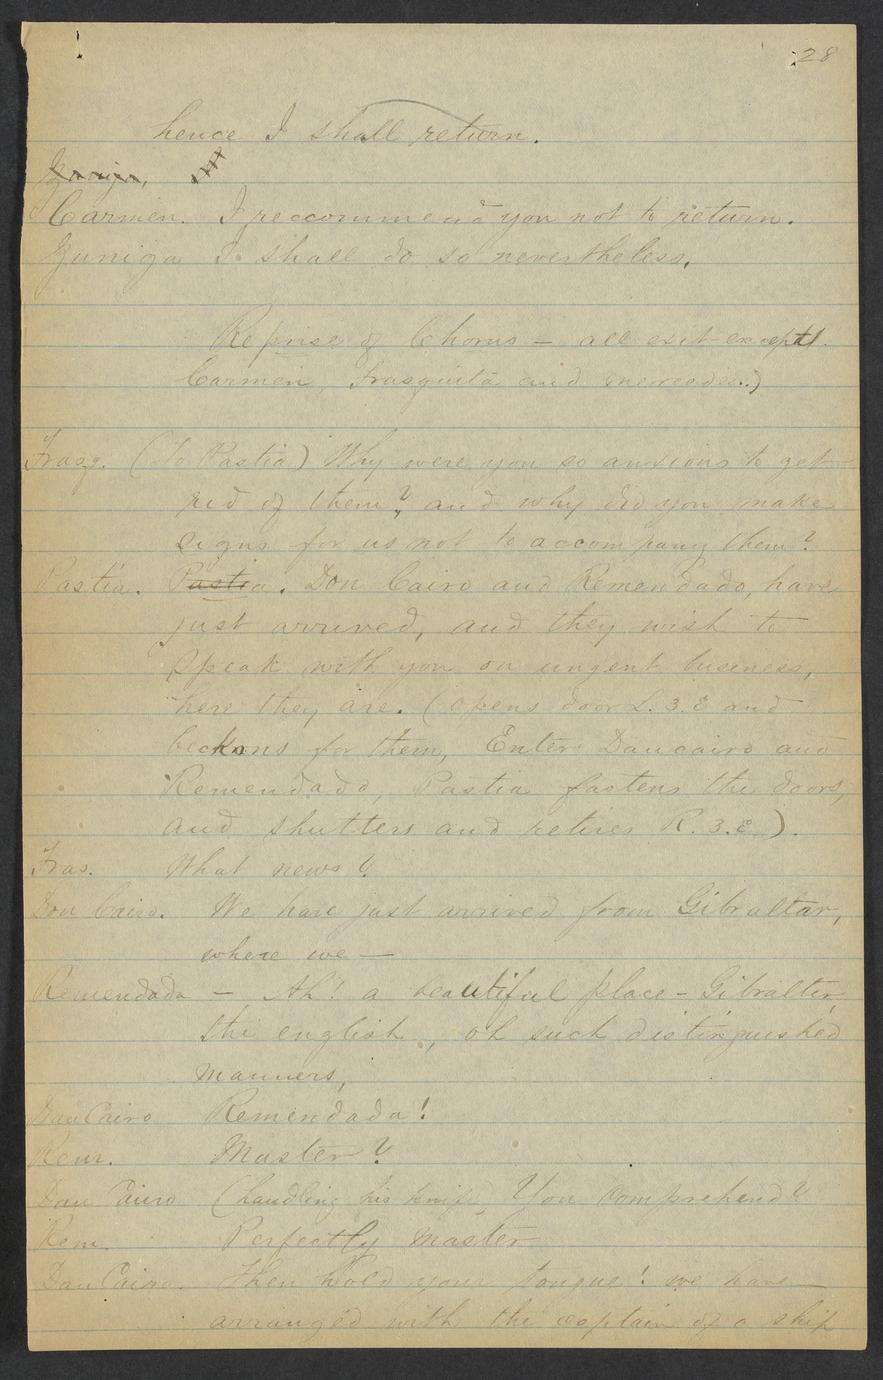 28
hence I shall return.
Zuniga,
Carmen. I reccommend you not to return.
Zuniga I shall do so nevertheless.
Reprise of Chorus – all exit except
Carmen, Frasquita and Mercedes.)
Frasq. (To Pastia) Why were you so anxious to get
rid of them? and why did you make
signs for us not to accompany them?
Pastia. Pastia. Don Cairo and Remendado, have
just arrived, and they wish to
speak with you on urgent business,
here they are. (opens door L.3.E and
beckons for them, Enter Dancairo and
Remendado, Pastia fastens the doors,
and shutters and retires R.3.E.).
Fras. What news?
Don Cairo. We have just arrived from Gibraltar,
where we —
Remendado — Ah! a beautiful place – Gibralter,
the english, oh such distinguished
manners,
Dan Cairo Remendada!
Rem. Master?
Dan Cairo (handling his knife) You comprehend?
Rem. Perfectly Master
Dan Cairo. Then hold your tongue! we have —
arranged with the captain of a ship